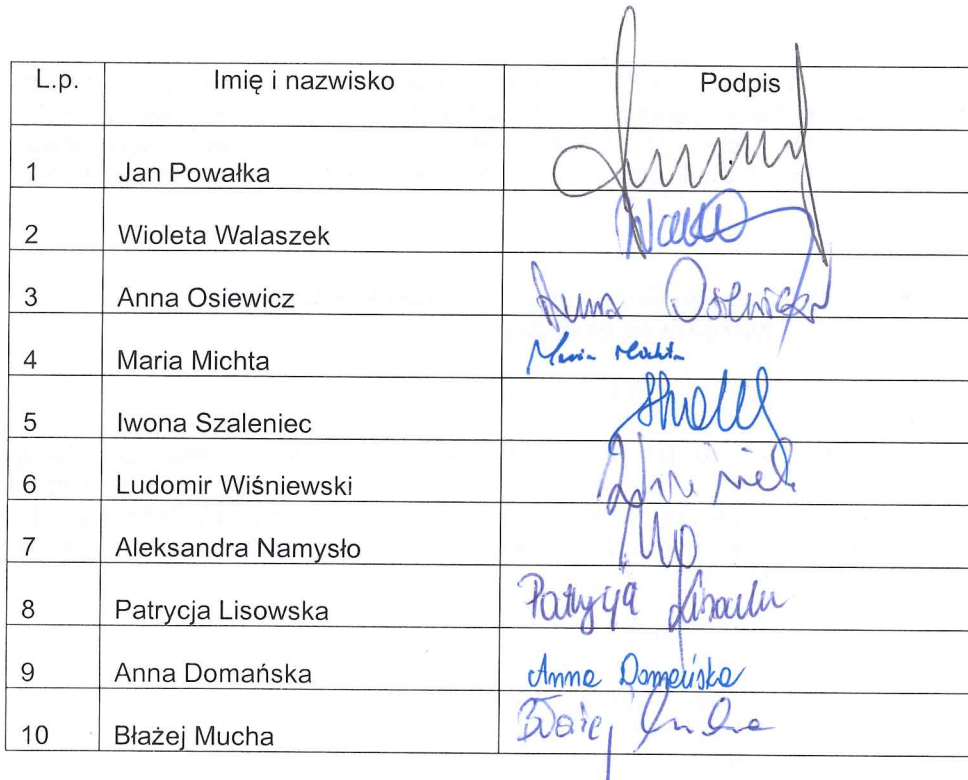 L.p. Imię i nazwisko Podpis
1 Jan Powałka
2 Wioleta Walaszek
3 Anna Osiewicz Anna Osiewicz
4 Maria Michta Maria Michta
5 Iwona Szaleniec
6 Ludomir Wiśniewski
7 Aleksandra Namysło
8 Patrycja Lisowska Patrycja
9 Anna Domańska Anna Domańska
10 Błażej Mucha Błażej Mucha